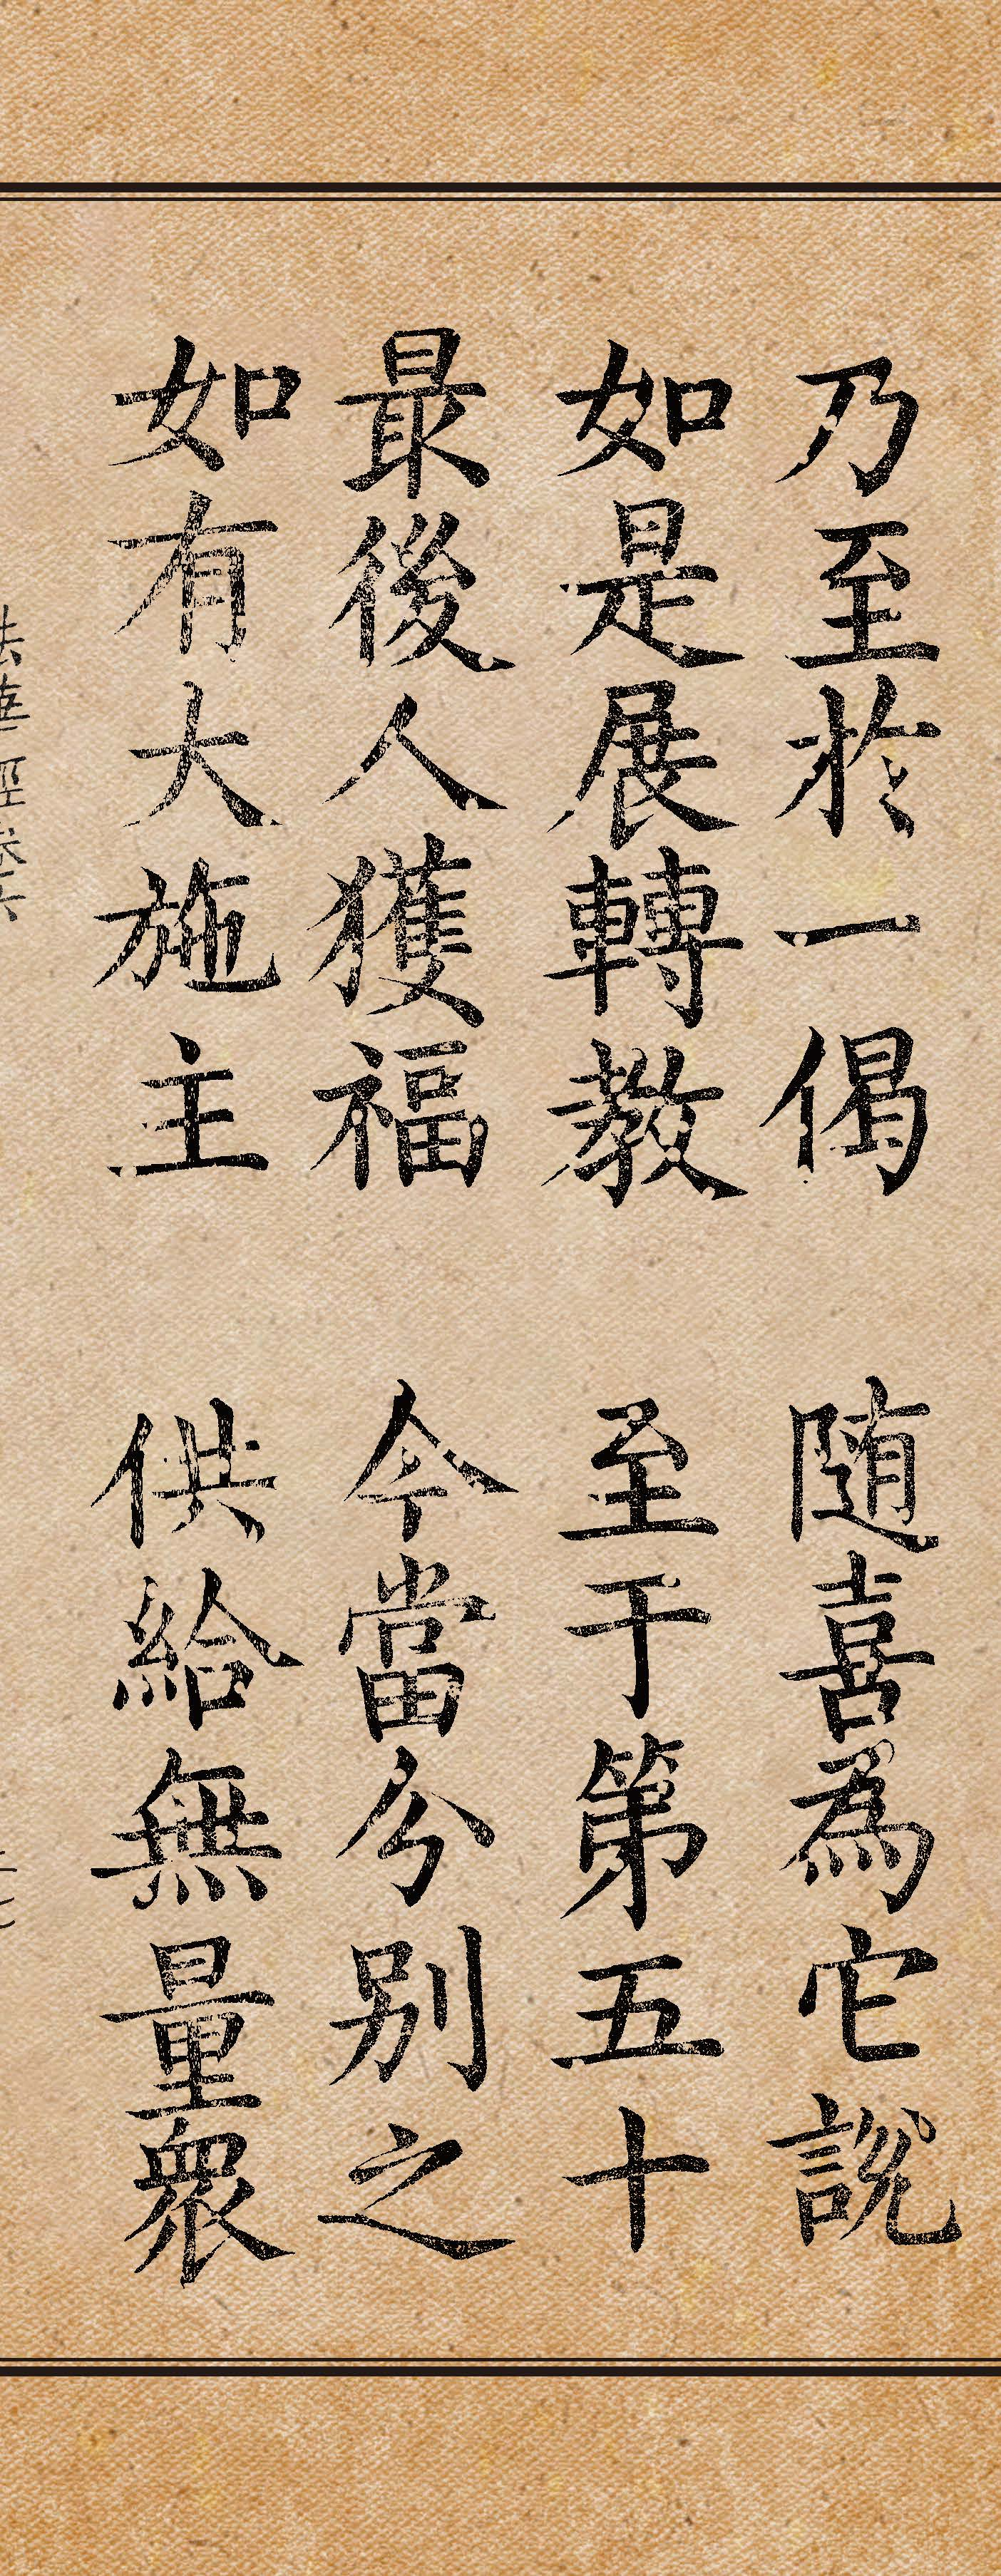 乃至於一偈　随喜為它說
如是展轉教　至于第五十
最後人獲福　今當分別之
如有大施主　供給無量衆
法華經卷六